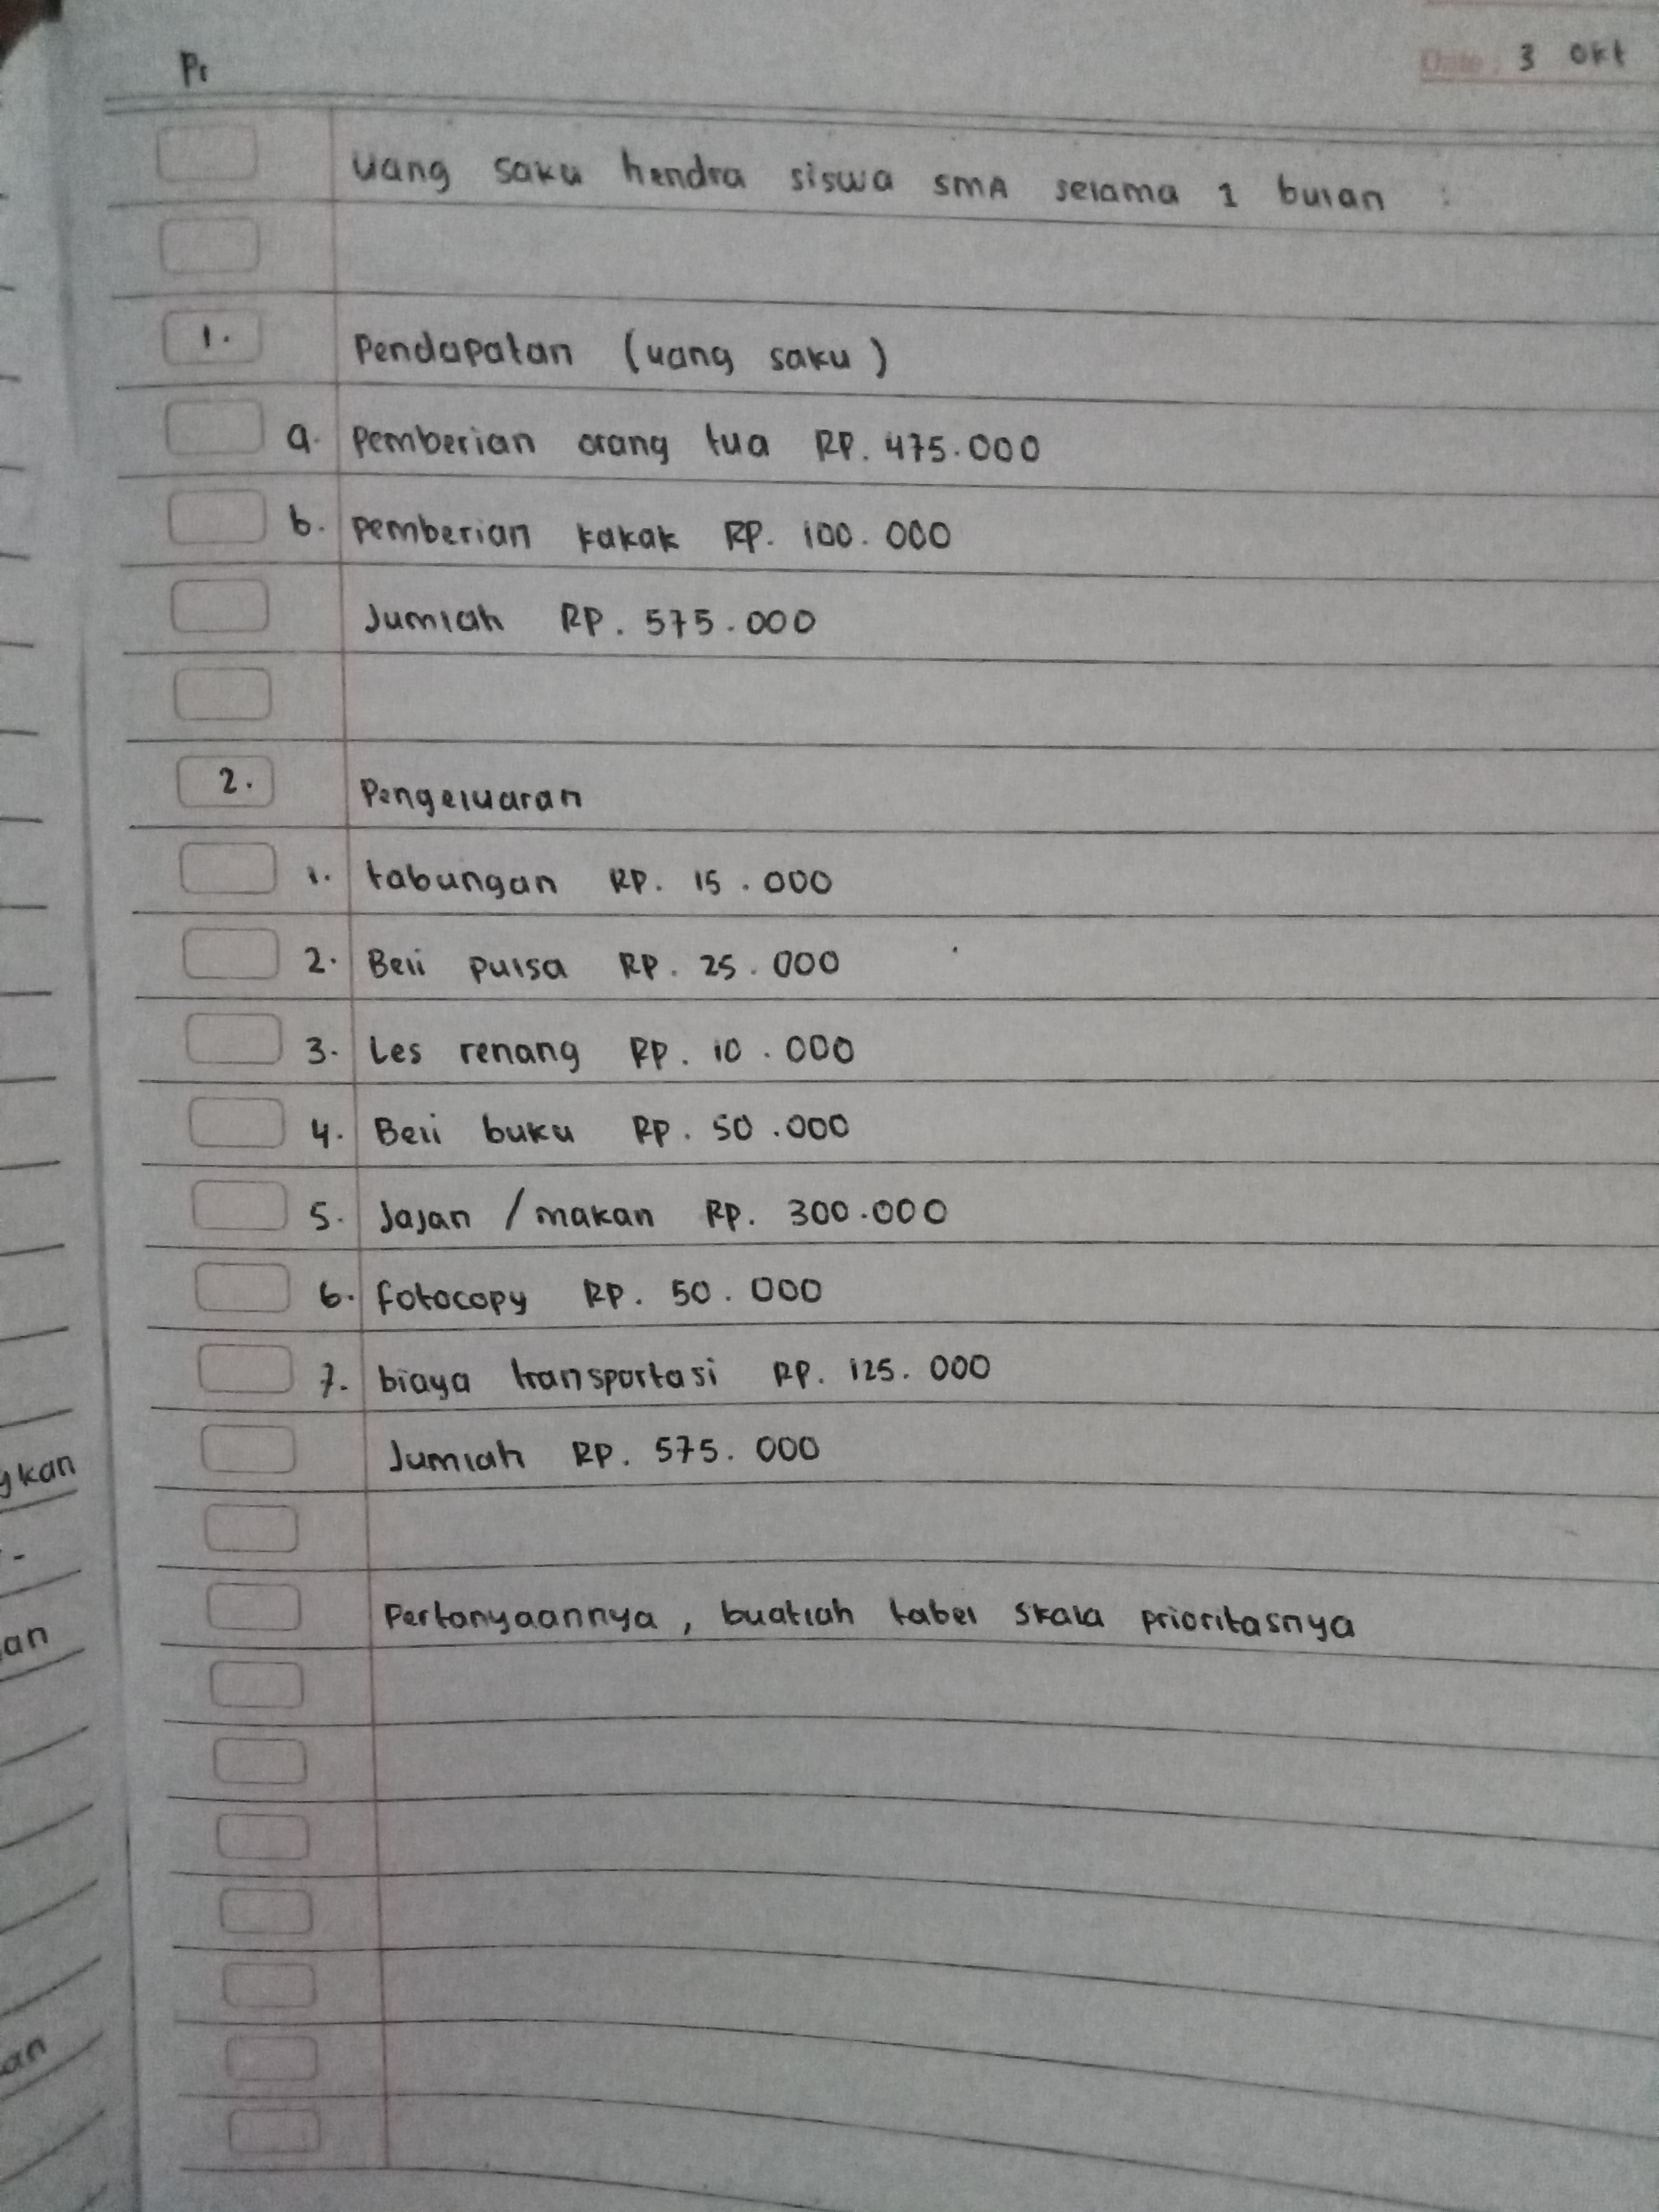 Pr
Date : 3 Okt
Uang saku hendra siswa SMA selama 1 bulan :
1. Pendapatan (uang saku)
a. Pemberian orang tua RP. 475.000
b. pemberian kakak RP. 100.000
Jumlah RP. 575.000
2. Pengeluaran
1. tabungan RP. 15.000
2. Beli pulsa RP. 25.000
3. Les renang RP. 10.000
4. Beli buku RP. 50.000
5. Jajan / makan RP. 300.000
6. fotocopy RP. 50.000
7. biaya transportasi RP. 125.000
Jumlah RP. 575.000
Pertanyaannya, buatlah tabel skala prioritasnya
gkan
-
an
an